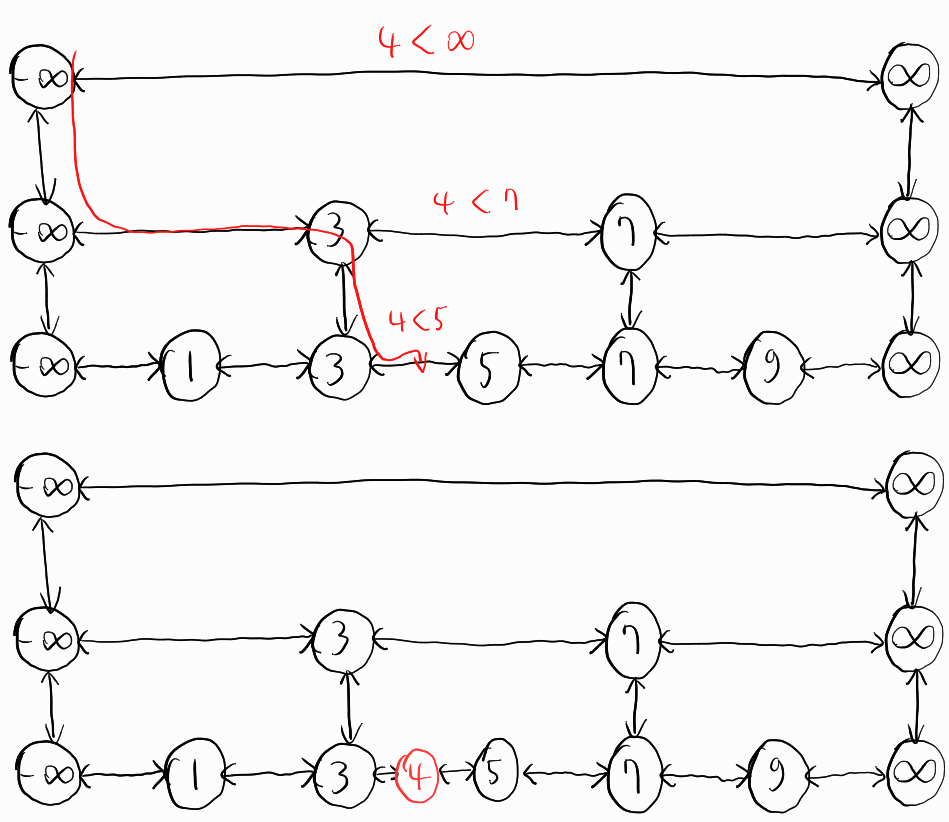 4 < ∞
-∞ ∞
4 < 7
-∞ 3 7 ∞
4 < 5
-∞ 1 3 5 7 9 ∞
-∞ ∞
-∞ 3 7 ∞
-∞ 1 3 4 5 7 9 ∞